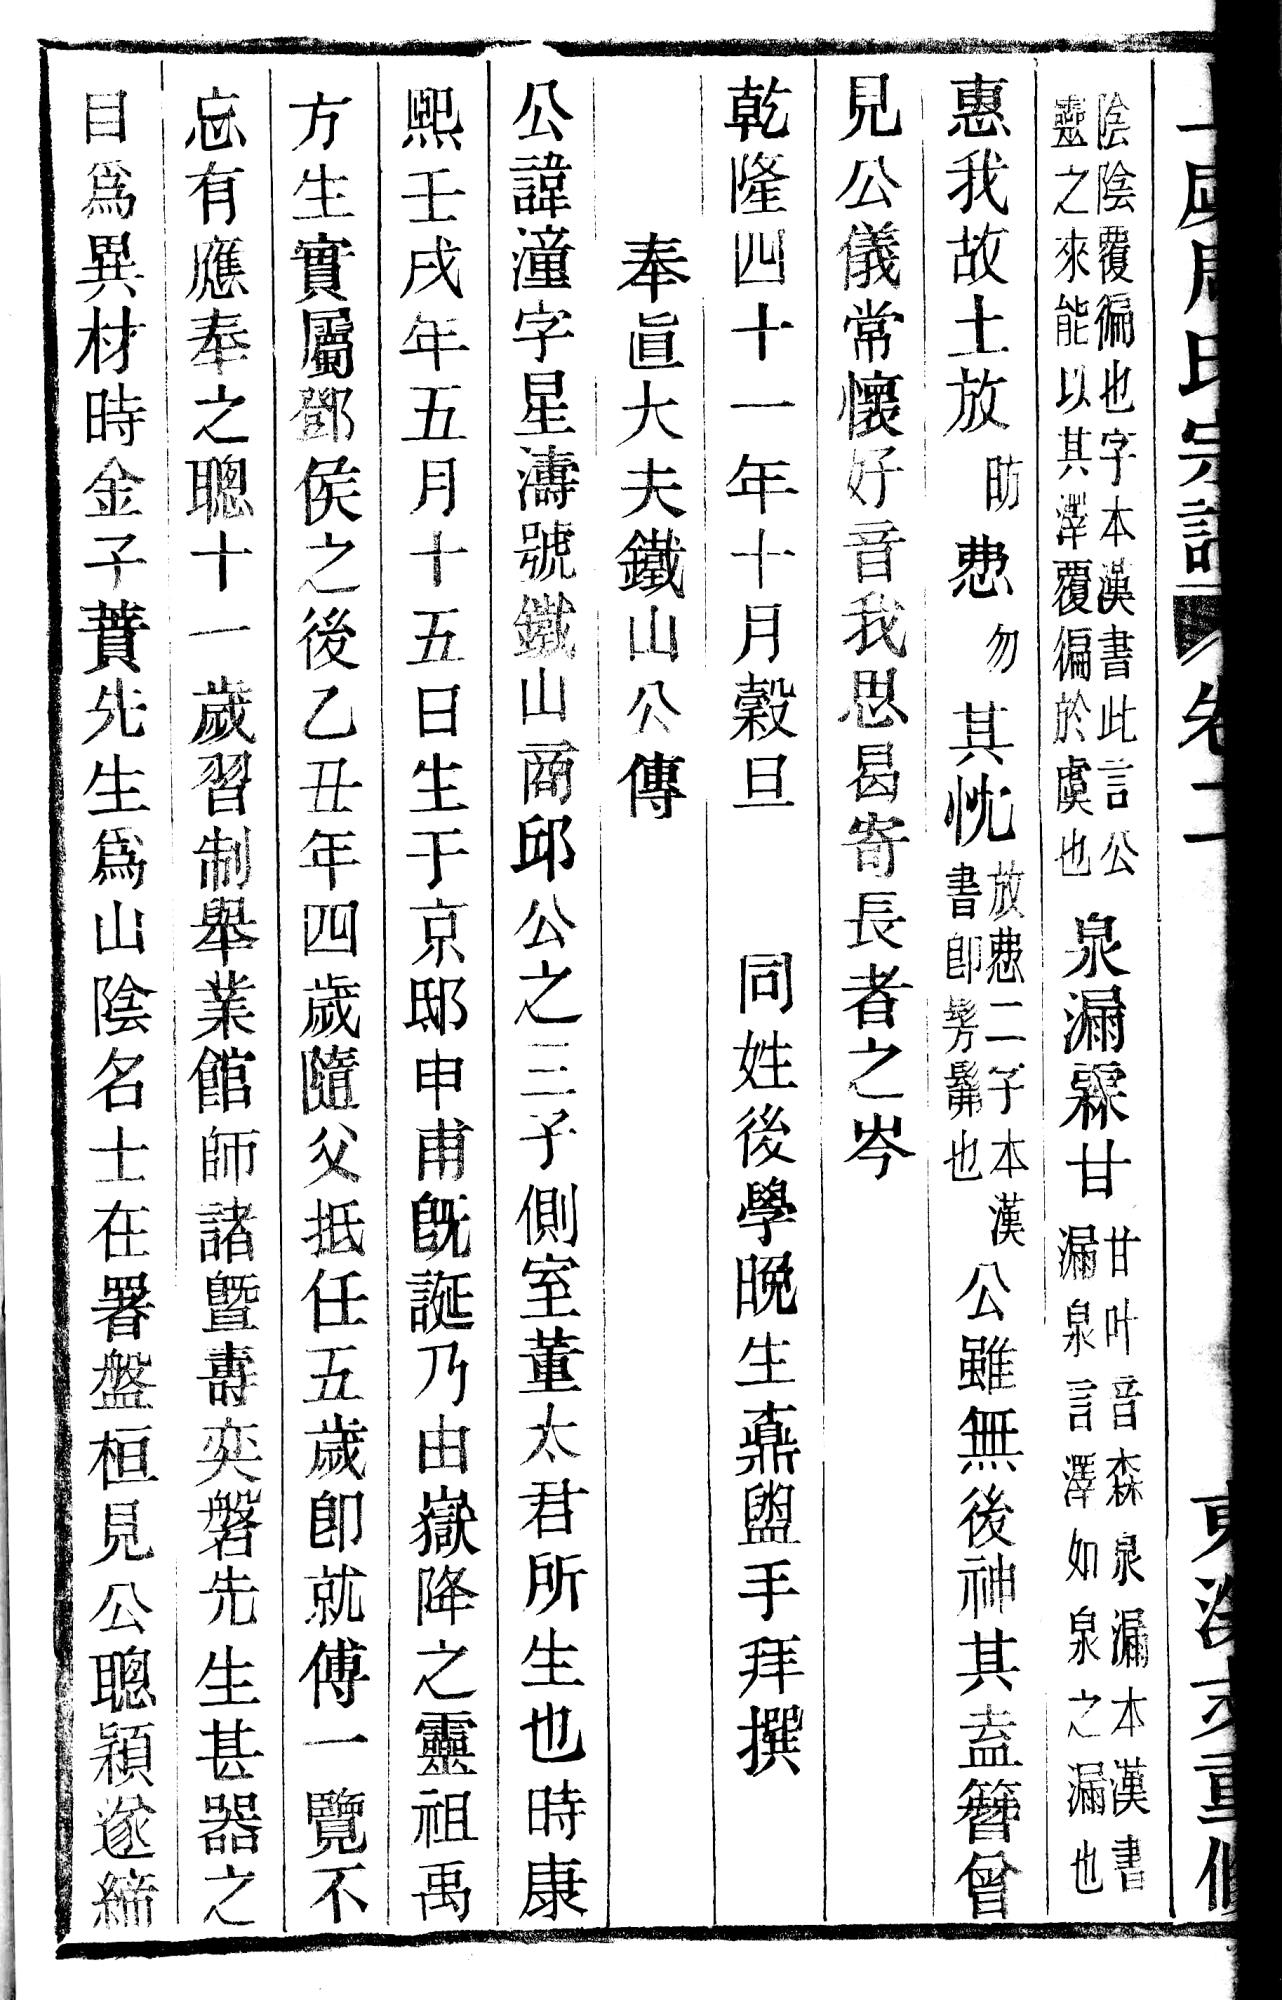 宗譜 卷二
陰陰覆徧也字本漢書此言公
靈之來能以其澤覆徧於虞也
泉漏霖甘
甘叶音森泉漏本漢書
漏泉言澤如泉之漏也
惠我故土放昉𢘍勿其怳
放𢘍二字本漢
書卽髣髴也
公雖無後神其盍簪曾
見公儀常懷好音我思曷寄長者之岑
乾隆四十一年十月穀旦 同姓後學晚生鼒盥手拜撰
奉眞大夫鐵山公傳
公諱潼字星濤號鐵山商邱公之三子側室董太君所生也時康
熙壬戌年五月十五日生于京邸申甫旣誕乃由嶽降之靈祖禹
方生實屬鄧侯之後乙丑年四歲隨父抵任五歲卽就傅一覽不
忘有應奉之聰十一歲習制舉業館師諸曁壽奕磐先生甚器之
目爲異材時金子蕡先生爲山陰名士在署盤桓見公聰穎遂締